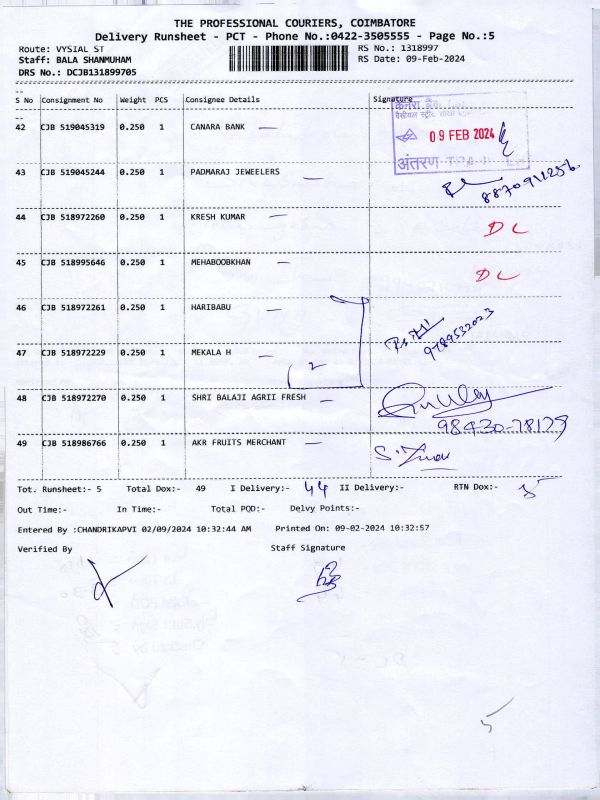 THE PROFESSIONAL COURIERS, COIMBATORE
Delivery Runsheet - PCT - Phone No.:0422-3505555 - Page No.:5
Route: VYSIAL ST
RS No.: 1318997
Staff: BALA SHANMUHAM
RS Date: 09-Feb-2024
DRS No.: DCJB131899705
S No Consignment No Weight PCS Consignee Details Signature
42 CJB 519045319 0.250 1 CANARA BANK
09 FEB 2024
अंतरण
43 CJB 519045244 0.250 1 PADMARAJ JEWEELERS
44 CJB 518972260 0.250 1 KRESH KUMAR DL
45 CJB 518995646 0.250 1 MEHABOOBKHAN DL
46 CJB 518972261 0.250 1 HARIBABU
9789532023
47 CJB 518972229 0.250 1 MEKALA H
2
48 CJB 518972270 0.250 1 SHRI BALAJI AGRII FRESH
98430-78179
49 CJB 518986766 0.250 1 AKR FRUITS MERCHANT
Tot. Runsheet:- 5 Total Dox:- 49 I Delivery:- 44 II Delivery:- RTN Dox:- 5
Out Time:- In Time:- Total POD:- Delvy Points:-
Entered By :CHANDRIKAPVI 02/09/2024 10:32:44 AM Printed On: 09-02-2024 10:32:57
Verified By Staff Signature
5